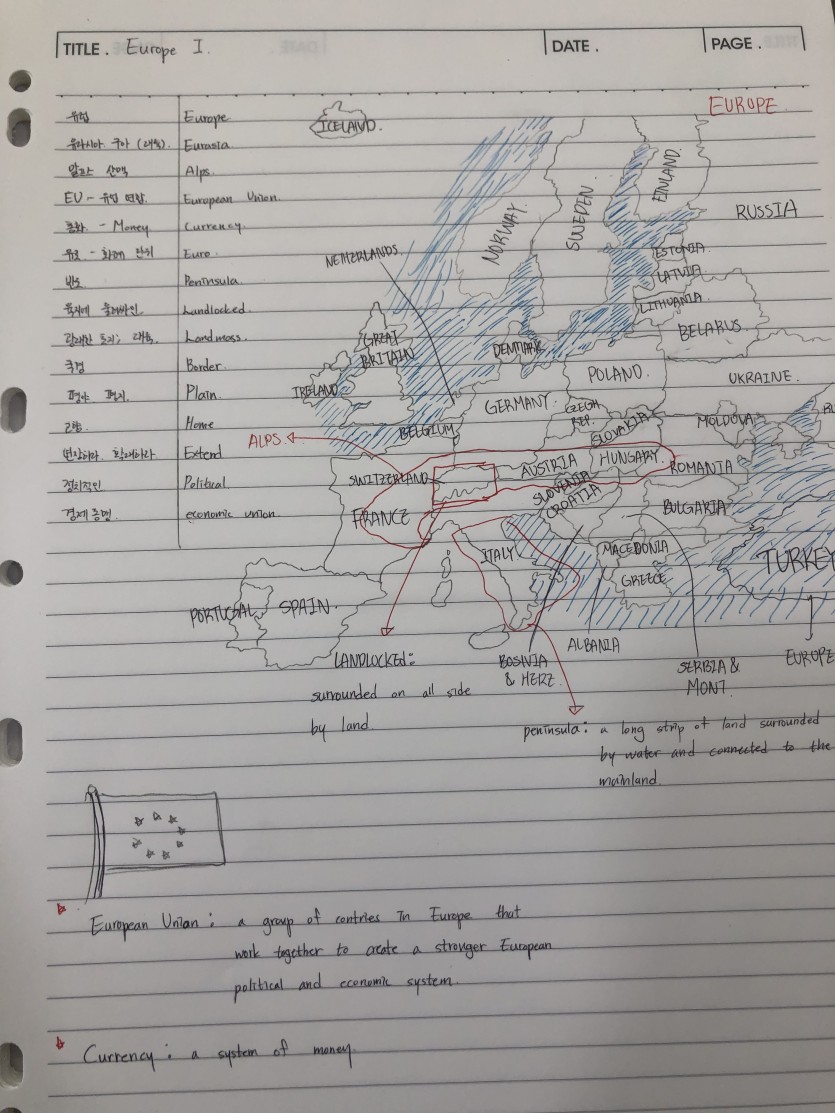 TITLE. Europe I.
DATE.
PAGE.
유럽 Europe
유라시아 구아 (대륙). Eurasia
알프스 산맥 Alps.
EU - 유럽 연합 European Union.
통화 - Money Currency.
유로 - 화폐 단위 Euro.
반도 Peninsula.
육지에 둘러싸인. Landlocked.
광대한 토지; 대륙. Landmass.
국경 Border.
평야 평지. Plain.
고향. Home
연장하다. 확대하다 Extend
정치적인 Political
경제 동맹. economic union.
EUROPE
ICELAND.
NORWAY.
SWEDEN.
FINLAND.
RUSSIA
NETHERLANDS.
ESTONIA
LATVIA
LITHUANIA
BELARUS.
GREAT
BRITAIN
DENMARK
IRELAND.
POLAND.
UKRAINE.
GERMANY.
CZECH
REP.
BELGIUM
SLOVAKIA
MOLDOVA
ALPS.
SWITZERLAND
AUSTRIA
HUNGARY.
ROMANIA
SLOVENIA
CROATIA
FRANCE
BULGARIA
ITALY
MACEDONIA
GREECE
TURKEY
PORTUGAL
SPAIN.
ALBANIA
BOSNIA
& HERZ.
SERBIA &
MONT.
EUROPE
LANDLOCKED:
surrounded on all side
by land.
peninsula: a long strip of land surrounded
by water and connected to the
mainland.
European Union: a group of contries in Europe that
work together to create a stronger European
political and economic system.
Currency: a system of money.